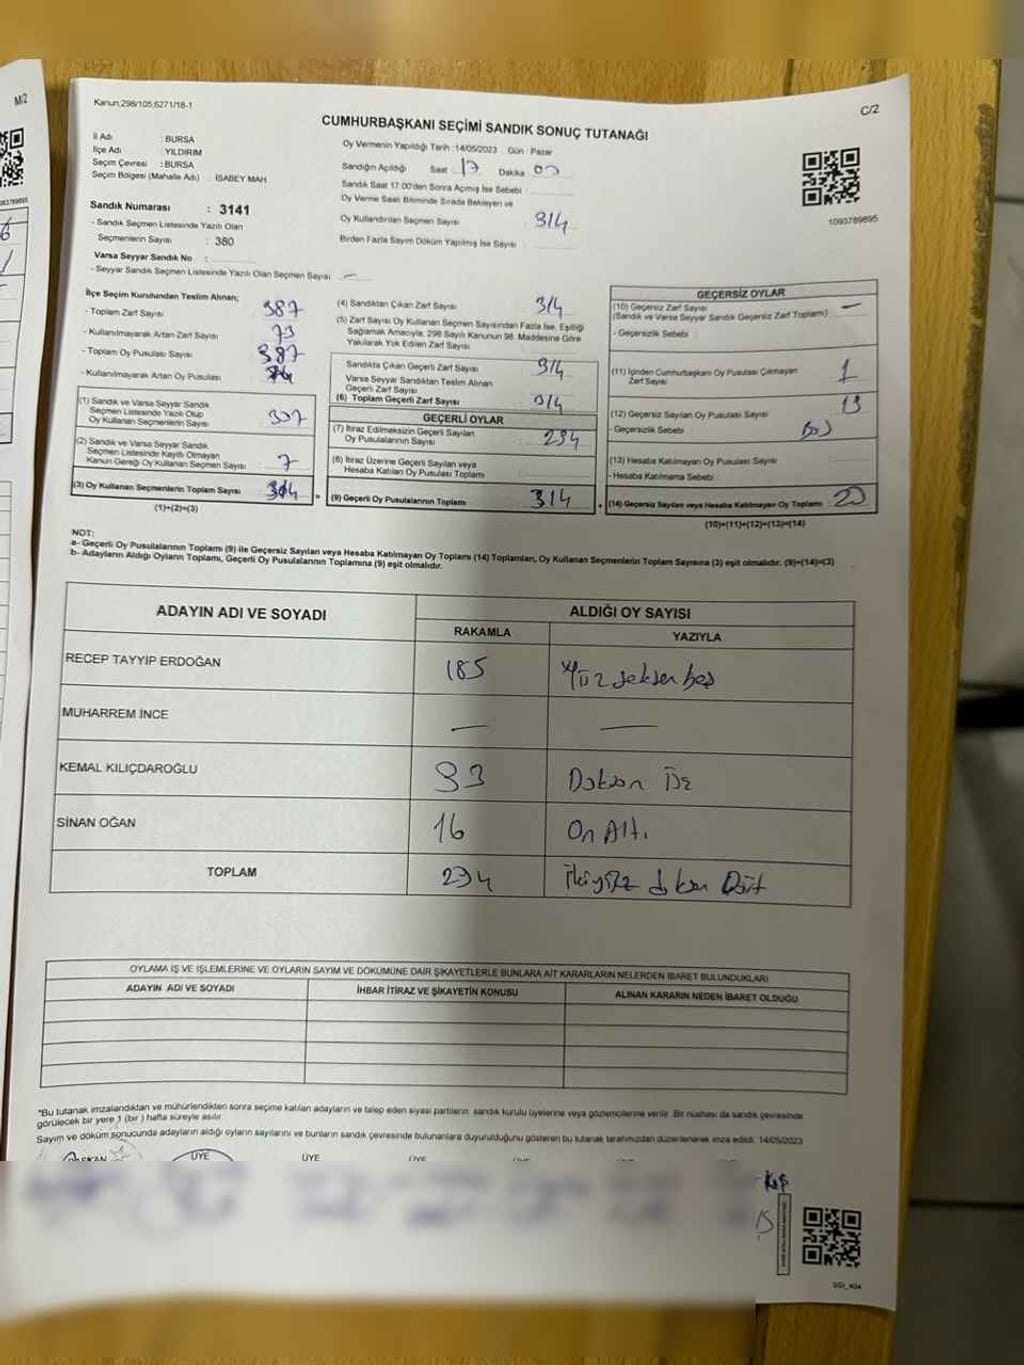 M/2
Kanun:298/105;6271/18-1
C/2
CUMHURBAŞKANI SEÇİMİ SANDIK SONUÇ TUTANAĞI
İl Adı : BURSA
İlçe Adı : YILDIRIM
Seçim Çevresi : BURSA
Seçim Bölgesi (Mahalle Adı) : İSABEY MAH
Oy Vermenin Yapıldığı Tarih :14/05/2023 Gün : Pazar
Sandığın Açıldığı Saat 17 Dakika
Sandık Saat 17.00'den Sonra Açılmış İse Sebebi :
Oy Verme Saati Bitiminde Sırada Bekleyen ve
Oy Kullandırılan Seçmen Sayısı : 314
Birden Fazla Sayım Döküm Yapılmış İse Sayısı :
1093789895
Sandık Numarası : 3141
- Sandık Seçmen Listesinde Yazılı Olan
Seçmenlerin Sayısı : 380
Varsa Seyyar Sandık No :
- Seyyar Sandık Seçmen Listesinde Yazılı Olan Seçmen Sayısı : —
İlçe Seçim Kurulundan Teslim Alınan;
- Toplam Zarf Sayısı : 387
- Kullanılmayarak Artan Zarf Sayısı : 73
- Toplam Oy Pusulası Sayısı : 387
- Kullanılmayarak Artan Oy Pusulası :
(1) Sandık ve Varsa Seyyar Sandık
Seçmen Listesinde Yazılı Olup
Oy Kullanan Seçmenlerin Sayısı : 307
(2) Sandık ve Varsa Seyyar Sandık
Seçmen Listesinde Kayıtlı Olmayan
Kanun Gereği Oy Kullanan Seçmen Sayısı : 7
(3) Oy Kullanan Seçmenlerin Toplam Sayısı : 314
(1)+(2)=(3)
(4) Sandıktan Çıkan Zarf Sayısı : 314
(5) Zarf Sayısı Oy Kullanan Seçmen Sayısından Fazla İse, Eşitliği
Sağlamak Amacıyla, 298 Sayılı Kanunun 98. Maddesine Göre
Yakılarak Yok Edilen Zarf Sayısı :
Sandıkta Çıkan Geçerli Zarf Sayısı : 314
Varsa Seyyar Sandıktan Teslim Alınan
Geçerli Zarf Sayısı :
(6) Toplam Geçerli Zarf Sayısı : 314
GEÇERLİ OYLAR
(7) İtiraz Edilmeksizin Geçerli Sayılan
Oy Pusulalarının Sayısı : 294
(8) İtiraz Üzerine Geçerli Sayılan veya
Hesaba Katılan Oy Pusulası Toplamı :
(9) Geçerli Oy Pusulalarının Toplamı : 314
GEÇERSİZ OYLAR
(10) Geçersiz Zarf Sayısı
(Sandık ve Varsa Seyyar Sandık Geçersiz Zarf Toplamı) : —
- Geçersizlik Sebebi :
(11) İçinden Cumhurbaşkanı Oy Pusulası Çıkmayan
Zarf Sayısı : 1
(12) Geçersiz Sayılan Oy Pusulası Sayısı : 19
- Geçersizlik Sebebi :
(13) Hesaba Katılmayan Oy Pusulası Sayısı :
- Hesaba Katılmama Sebebi :
(14) Geçersiz Sayılan veya Hesaba Katılmayan Oy Toplamı : 20
(10)+(11)+(12)+(13)=(14)
NOT:
a- Geçerli Oy Pusulalarının Toplamı (9) ile Geçersiz Sayılan veya Hesaba Katılmayan Oy Toplamı (14) Toplamları, Oy Kullanan Seçmenlerin Toplam Sayısına (3) eşit olmalıdır. (9)+(14)=(3)
b- Adayların Aldığı Oyların Toplamı, Geçerli Oy Pusulalarının Toplamına (9) eşit olmalıdır.
ADAYIN ADI VE SOYADI ALDIĞI OY SAYISI
RAKAMLA YAZIYLA
RECEP TAYYİP ERDOĞAN 185 Yüz seksen beş
MUHARREM İNCE — —
KEMAL KILIÇDAROĞLU 93 Doksan üç
SİNAN OĞAN 16 On Altı
TOPLAM 294 İkiyüz doksan Dört
OYLAMA İŞ VE İŞLEMLERİNE VE OYLARIN SAYIM VE DÖKÜMÜNE DAİR ŞİKAYETLERLE BUNLARA AİT KARARLARIN NELERDEN İBARET BULUNDUKLARI
ADAYIN ADI VE SOYADI İHBAR İTİRAZ VE ŞİKAYETİN KONUSU ALINAN KARARIN NEDEN İBARET OLDUĞU
*Bu tutanak imzalandıktan ve mühürlendikten sonra seçime katılan adayların ve talep eden siyasi partilerin sandık kurulu üyelerine veya gözlemcilerine verilir. Bir nüshası da sandık çevresinde
görülecek bir yere 1 (bir) hafta süreyle asılır.
Sayım ve döküm sonucunda adayların aldığı oyların sayılarını ve bunların sandık çevresinde bulunanlara duyurulduğunu gösteren bu tutanak tarafımızdan düzenlenerek imza edildi. 14/05/2023
BAŞKAN ÜYE ÜYE ÜYE